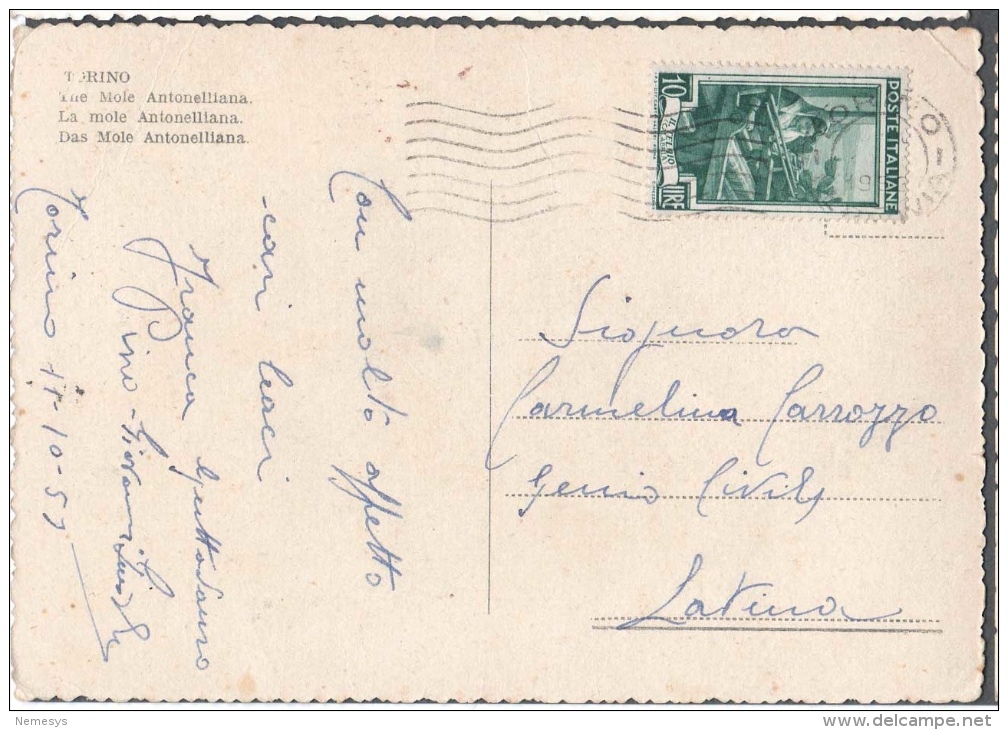 TORINO
The Mole Antonelliana.
La mole Antonelliana.
Das Mole Antonelliana.
10
LIRE
POSTE ITALIANE
Con molto affetto
- cari baci
Franca
Pino - Giovanni
Torino 17-10-5
Signora
Carmelina Carrozzo
Genio Civile
Latina
Nemesys
delcampe.net